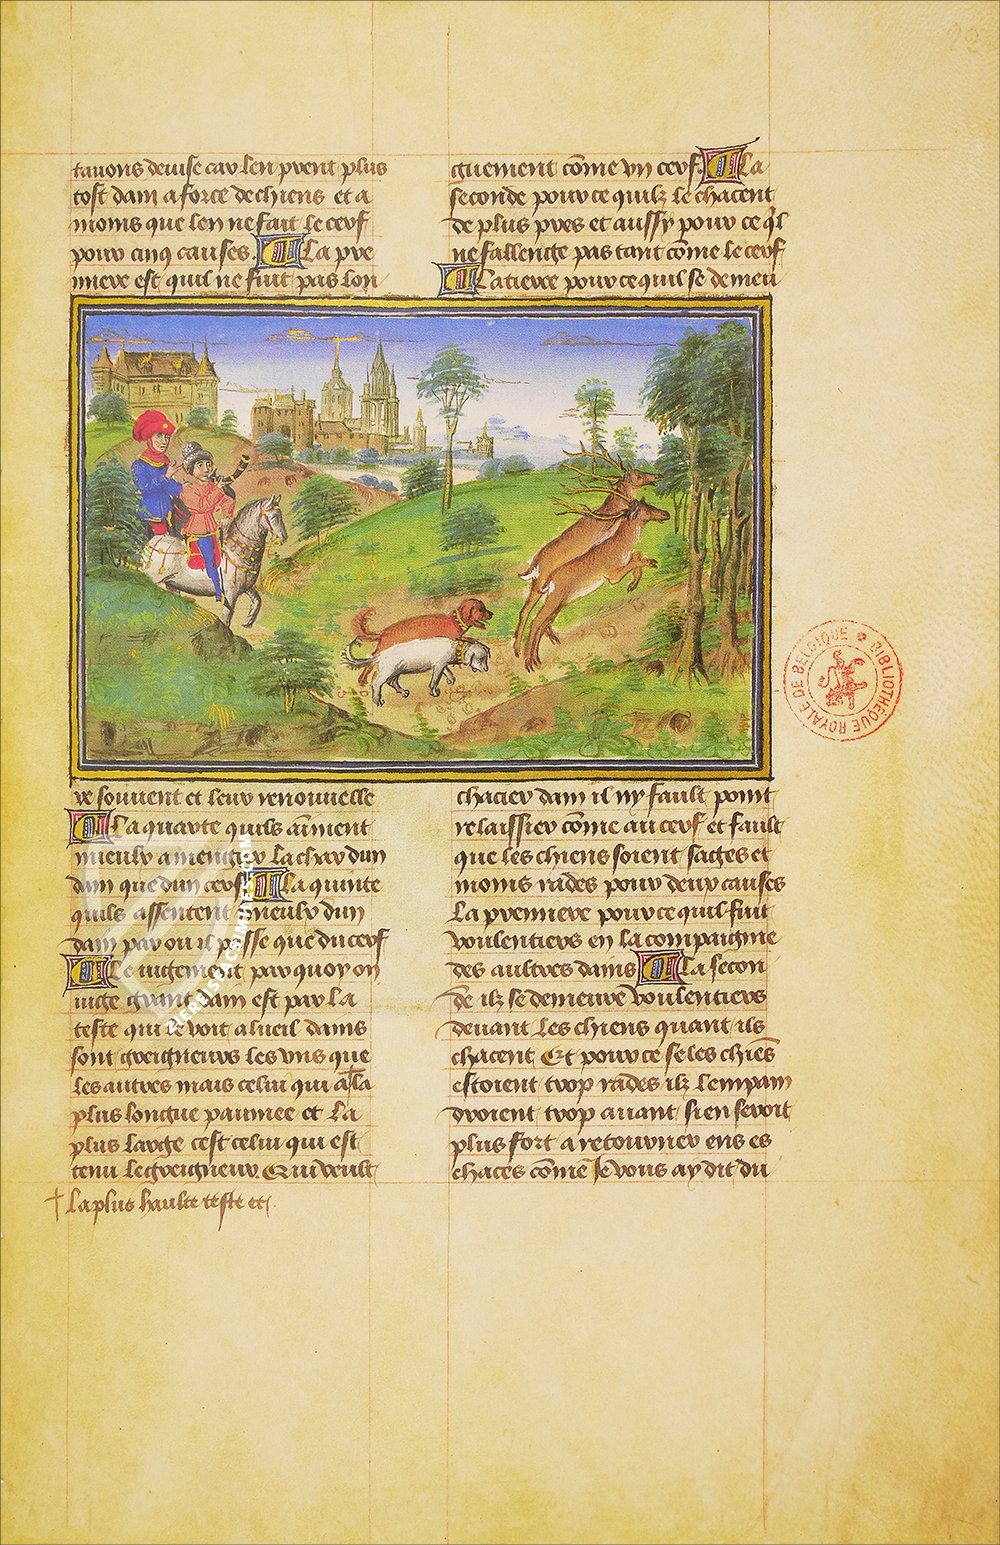 tavons deuise car len prent plus
tost dam a force de chiens et a
moins que len ne fait le cerf
pour cinq causes. La pre
miere est quil ne fuit pas lon
guement cōme vn cerf. La
seconde pour ce quilz le chacent
de plus pres et aussy pour ce ql
ne fallenge pas tant cōme le cerf
La tierce pour ce quil se demeu
re souuent et leur renouuelle
La quarte quilz aiment
mieulx a mengier la char dun
dam que dun cerf. La quinte
quilz assentent mieulx dun
dam par ou il passe que du cerf
Le iugement par quoy on
iuge grant dam est par la
teste qui le voit a lueil dams
sont greigneurs les vns que
les autres mais celui qui a la
plus longue paumee et la
plus large cest celui qui est
tenu le greigneur. Qui veult
† la plus haulte teste et
chacier dam il ny fault point
relaissier cōme au cerf et fault
que les chiens soient sages et
moins rades pour deux causes
La premiere pour ce quil fuit
voulentiers en la compaignie
des aultres dams. La secon
de ilz se demeure voulentiers
deuant les chiens quant ils
chacent Et pour ce se les chiēs
estoient trop rades ilz lempain
droient trop auant si en seroit
plus fort a retourner ens es
chaces cōme Je vous ay dit du
BIBLIOTHEQUE ROYALE DE BELGIQUE
ZIEREISFACSIMILES.COM